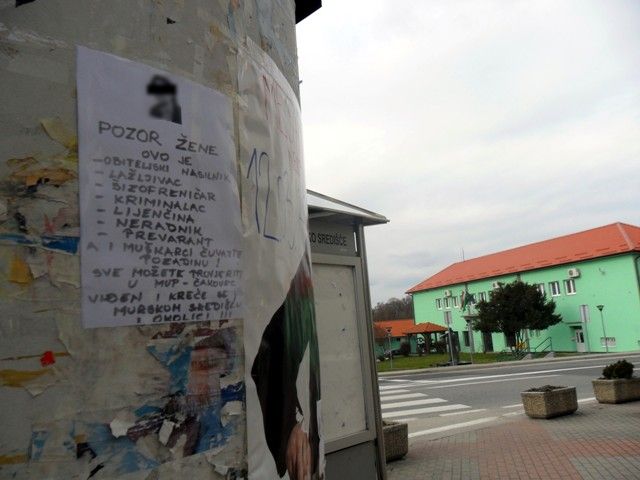 POZOR ŽENE
OVO JE
- OBITELJSKI NASILNIK
- LAŽLJIVAC
- ŠIZOFRENIČAR
- KRIMINALAC
- LIJENČINA
- NERADNIK
- PREVARANT
A I MUŠKARCI ČUVAJTE
POZADINU!
SVE MOŽETE PROVJERITI
U MUP - ČAKOVEC
VIĐEN I KREĆE SE
MURSKOM SREDIŠĆU
I OKOLICI!!!
12
SREDIŠĆE